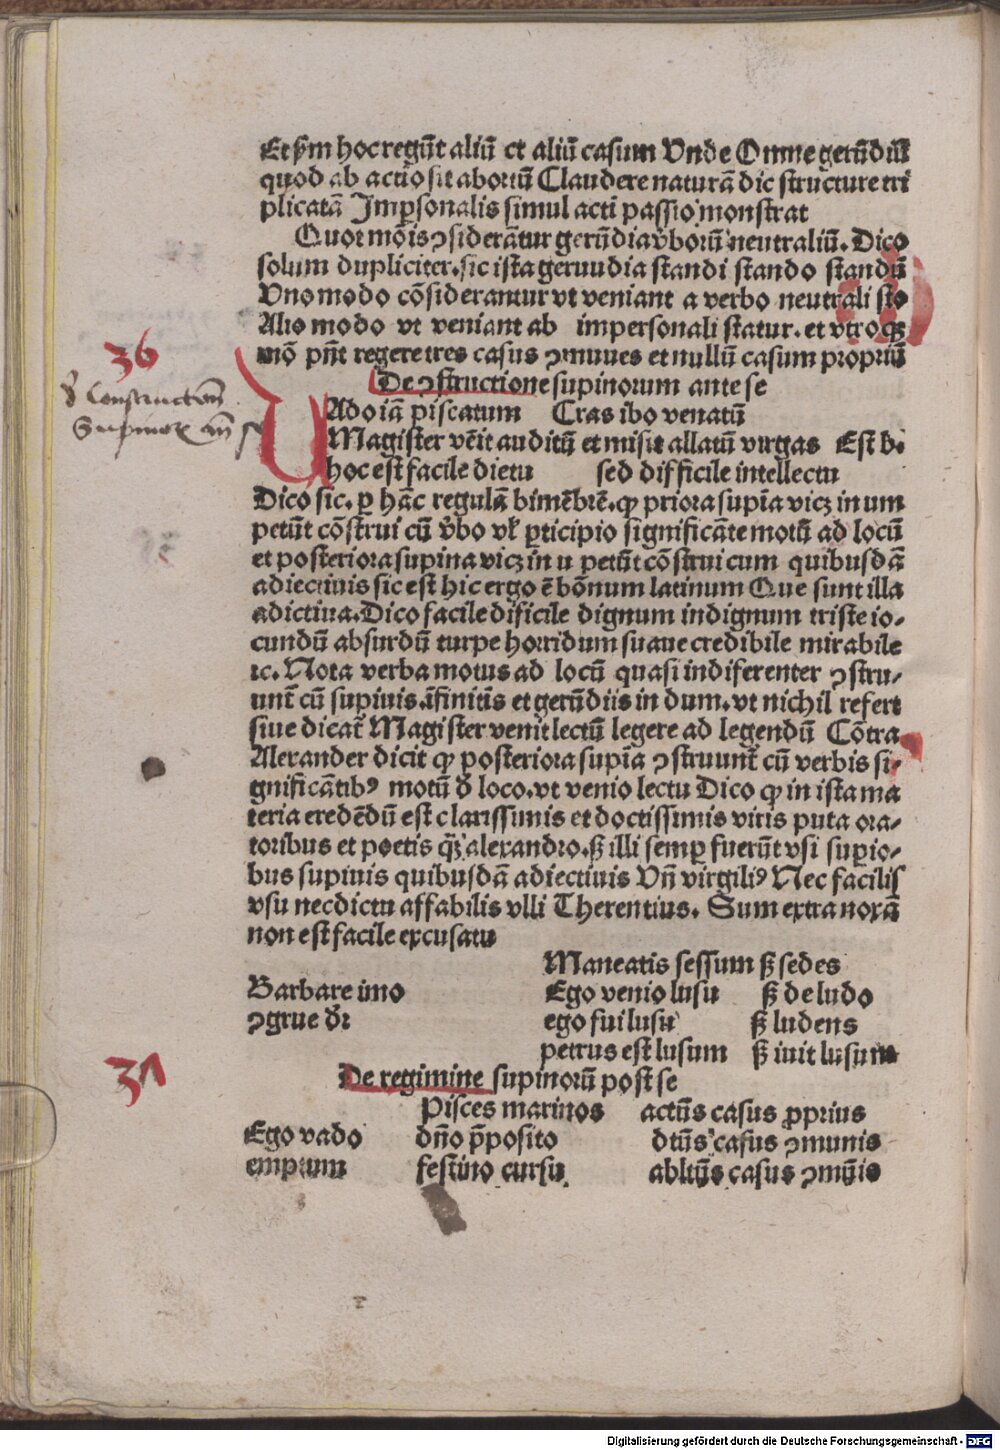 Et ẜm hoc regūt aliū et aliū casum Vnde Omne gerūdiū
quod ab actio sit abortū Claudere naturā dic structure tri
plicatā Impersonalis simul acti passio monstrat
Quot mōis ꝯsiderātur gerūdia v̄borū neutraliū. Dico
solum dupliciter. sic ista geruudia standi stando standū
Vno modo cōsiderantur vt veniant a verbo neutrali sto
Alio modo vt veniant ab impersonali statur. et vtroqꝫ
mō pn̄t regere tres casus ꝯmunes et nullū casum propriū
36
De ꝯstructione supinorum ante se
VAdo iā piscatum Cras ibo venatū
Magister vēit auditū et misit allatū virgas Est b.
hoc est facile dictu sed difficile intellectu
Dico sic. ꝑ hāc regulā bimēbrē. ꝙ priora supīa vicꝫ in um
petūt cōstrui cū v̄bo vł ꝑticipio significāte motū ad locū
et posteriora supina vicꝫ in u petūt cōstrui cum quibusdā
adiectiuis sic est hic ergo ē bōnum latinum Que sunt illa
adictiua. Dico facile dificile dignum indignum triste io-
cundū absurdū turpe horridum suaue credibile mirabile
ꝛc. Nota verba motus ad locū quasi indiferenter ꝯstru-
unt̄ cū supiuis. īfinitīs et gerūdiis in dum. vt nichil refert
siue dicat̄ Magister venit lectū legere ad legendū Cōtra
Alexander dicit ꝙ posteriora supīa ꝯstruunt̄ cū verbis si-
gnificātibꝰ motū d̄ loco. vt venio lectu Dico ꝙ in ista ma
teria credēdū est clarissimis et doctissimis viris puta ora-
toribus et poetis q̄ꝫ alexandro. ꝟ illi semꝑ fuerūt vsi suꝑio-
bus supiuis quibusdā adiectiuis Vn̄ virgiliꝰ Nec facilis
vsu nec dictu affabilis vlli Therentius. Sum extra noxā
non est facile excusatu
Maneatis sessum ꝟ sedes
Barbare imo Ego venio lusu ꝟ de ludo
ꝯgrue d̄ꝛ ego fui lusu ꝟ ludens
petrus est lusum ꝟ iuit lusum
37
De regimine supinorū post se
Pisces marinos actūs casus ꝓprius
Ego vado dn̄o p̄posito dtūs casus ꝯmunis
emptum festino cursu abltūs casus ꝯmūis
Digitalisierung gefördert durch die Deutsche Forschungsgemeinschaft - DFG